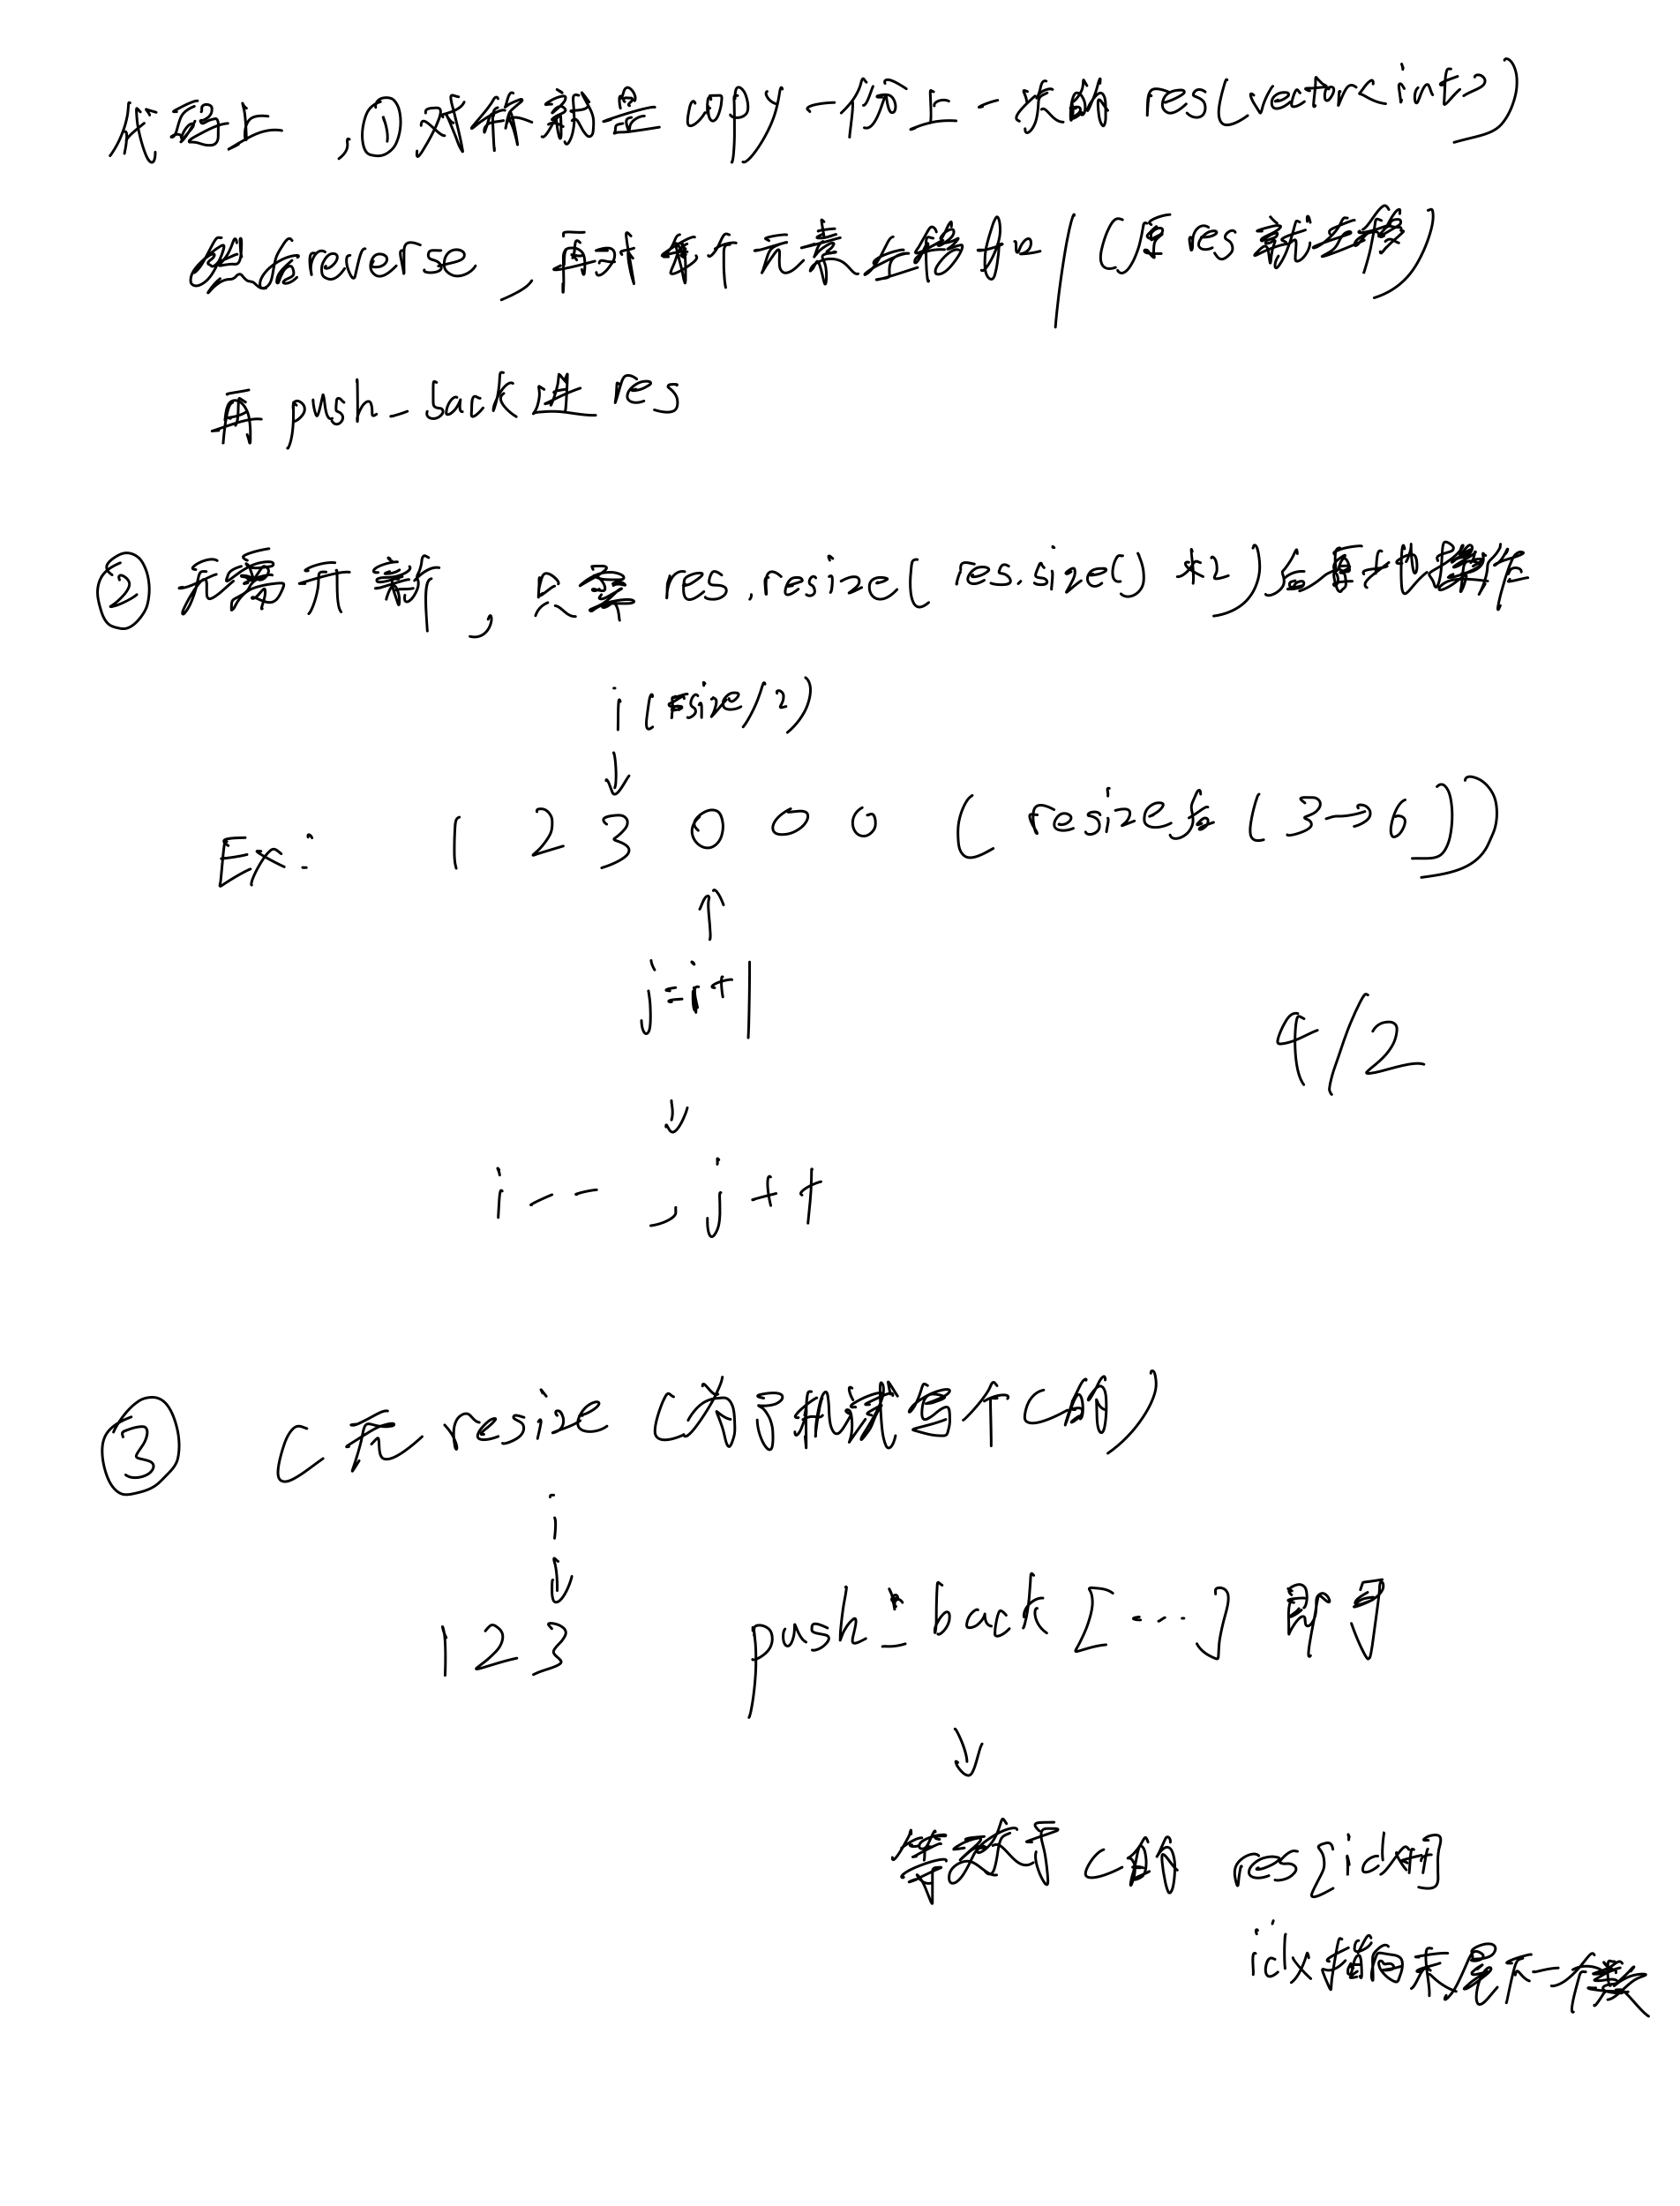 代码上，①对称就是 copy 一份上一步的 res(vector<int>)
然后reverse，再对每个元素左移加1(原res就左移)
再 push_back 进 res
② 无需开新，只要 res.resize( res.size() *2)后原地操作
i(size/2)
↓
Ex: 1 2 3 0 0 0 ( resize后(3→6))
↑
j=i+1
4/2
↓
i-- , j++
③ C无resize (为了机试写个C的)
i
↓
1 2 3 push_back[...] 即可
↓
等效于 C的 res[idx]
idx指向末尾下一个数